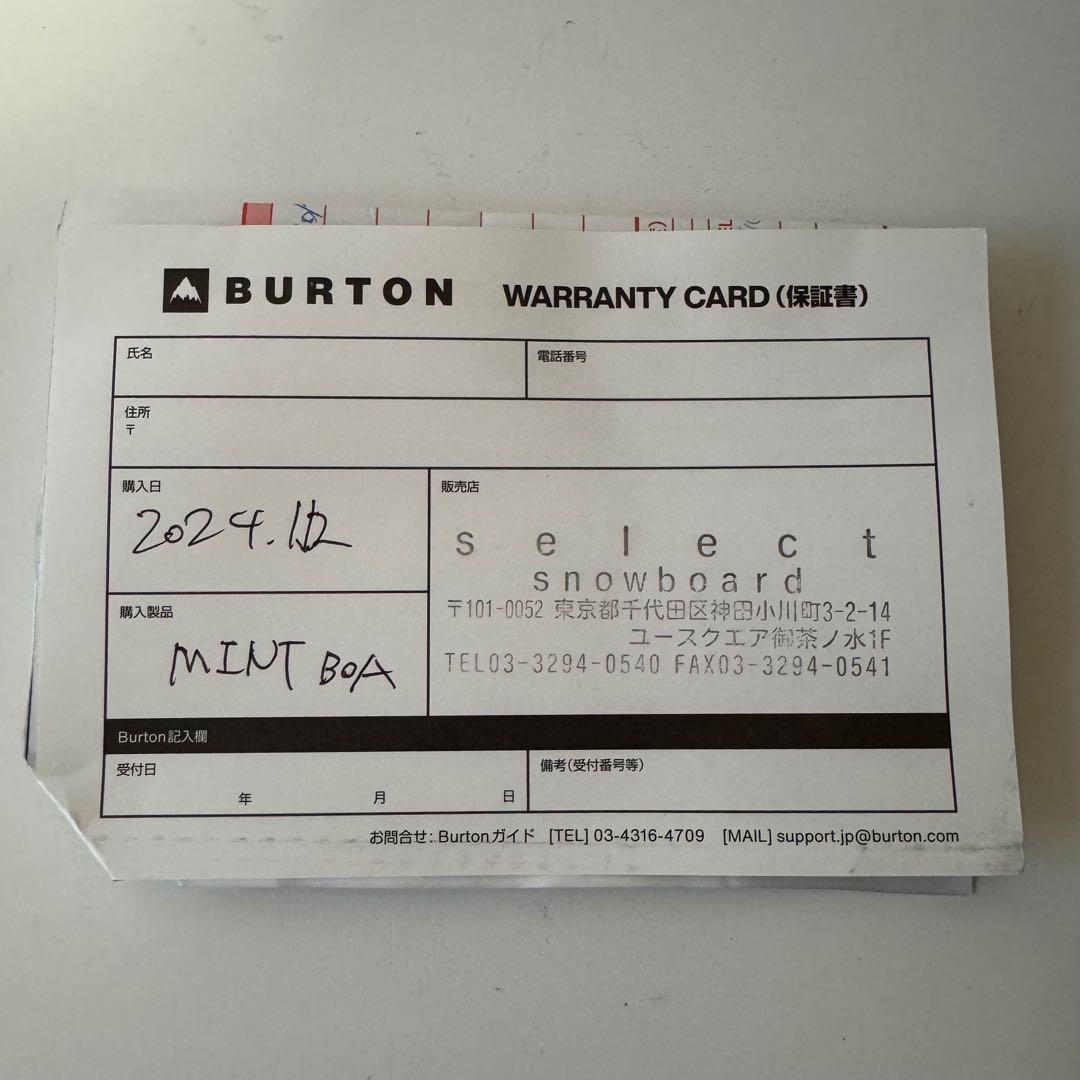 BURTON WARRANTY CARD(保証書)
氏名 電話番号
住所
〒
購入日
2024.12
販売店
select
snowboard
〒101-0052 東京都千代田区神田小川町3-2-14
ユースクエア御茶ノ水1F
TEL03-3294-0540 FAX03-3294-0541
購入製品
MINT BOA
Burton記入欄
受付日
年 月 日
備考(受付番号等)
お問合せ: Burtonガイド [TEL] 03-4316-4709 [MAIL] support.jp@burton.com